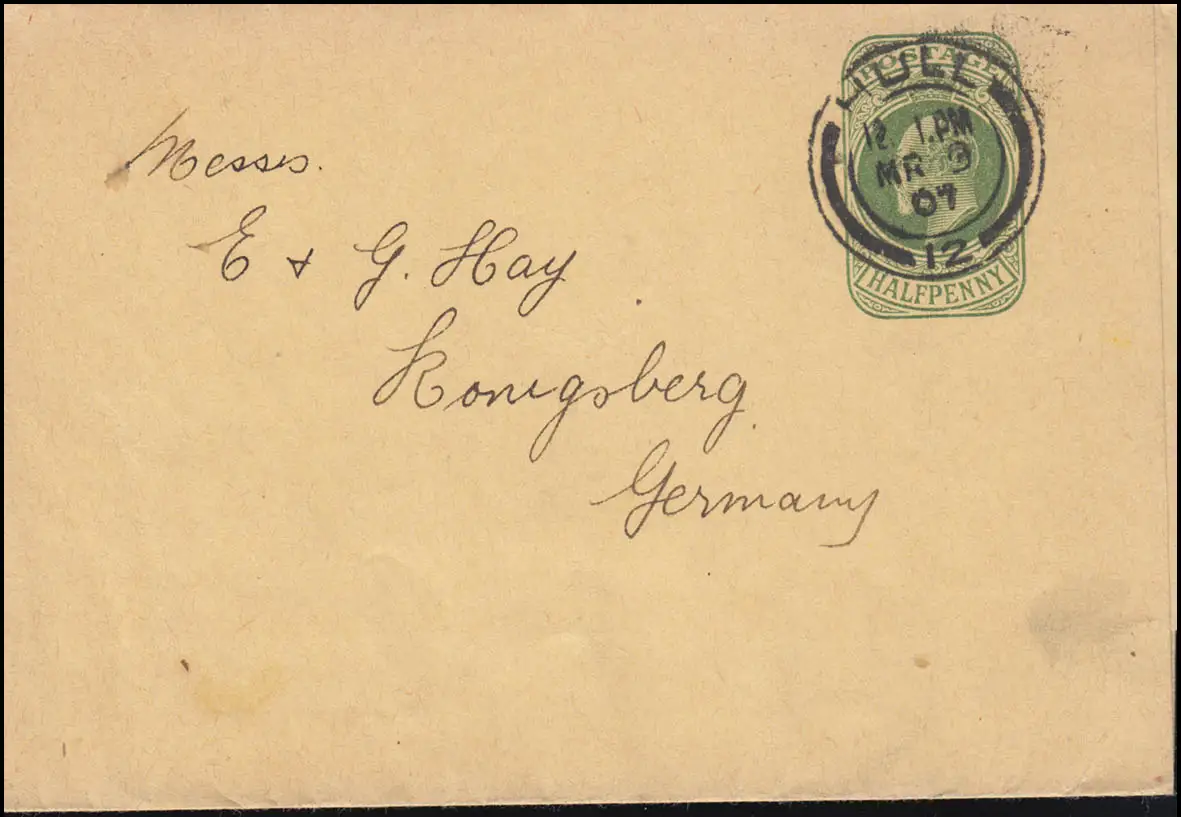 POSTAGE
HULL
12. 1.PM
MR 9
07
12
HALFPENNY
Messrs.
E & G. Hay
Konigsberg
Germany